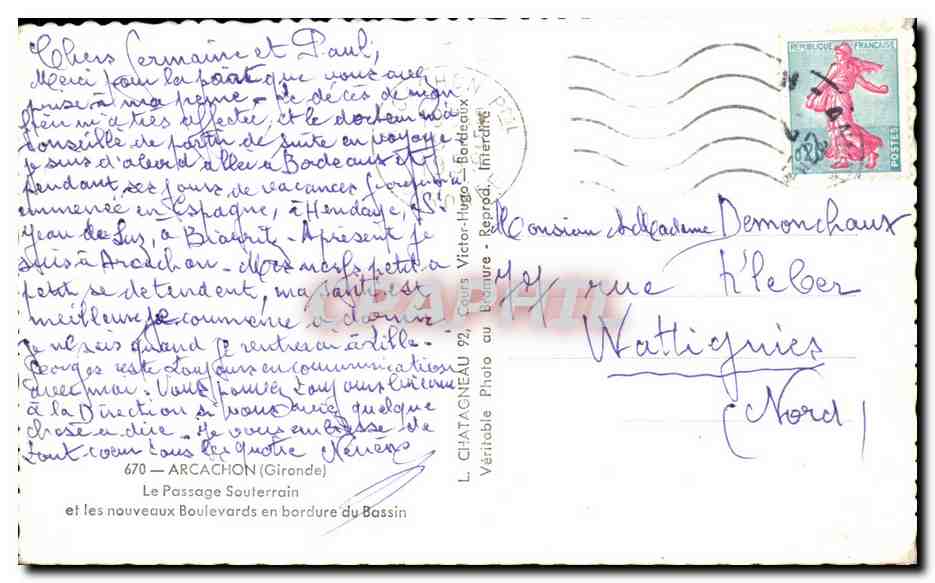 Chers Germaine et Paul,
Merci pour la part que vous avez
prise à ma peine - Le décès de mon
m'a très affectée, et le docteur m'a
conseillé de partir de suite en voyage
je suis d'abord allée à Bordeaux et
pendant ses jours de vacances Georges m'a
emmenée en Espagne, à Hendaye, St
Jean de Luz, à Biarritz. A présent je
suis à Arcachon. Mes nerfs petit à
petit se détendent, ma santé est
meilleure je commence à dormir.
je ne sais quand je rentrerai à Lille.
Georges reste toujours en communication
avec moi. Vous pouvez toujours
à la Direction si vous avez quelque
chose à dire. Je vous embrasse de
tout coeur tous les quatre
670 — ARCACHON (Gironde)
Le Passage Souterrain
et les nouveaux Boulevards en bordure du Bassin
L. CHATAGNEAU 92, Cours Victor-Hugo - Bordeaux
Véritable Photo au Bromure - Reprod. Interdite
REPUBLIQUE FRANÇAISE
POSTES
Monsieur & Madame Demonchaux
rue Kléber
Wattignies
(Nord)
CPAPHIL